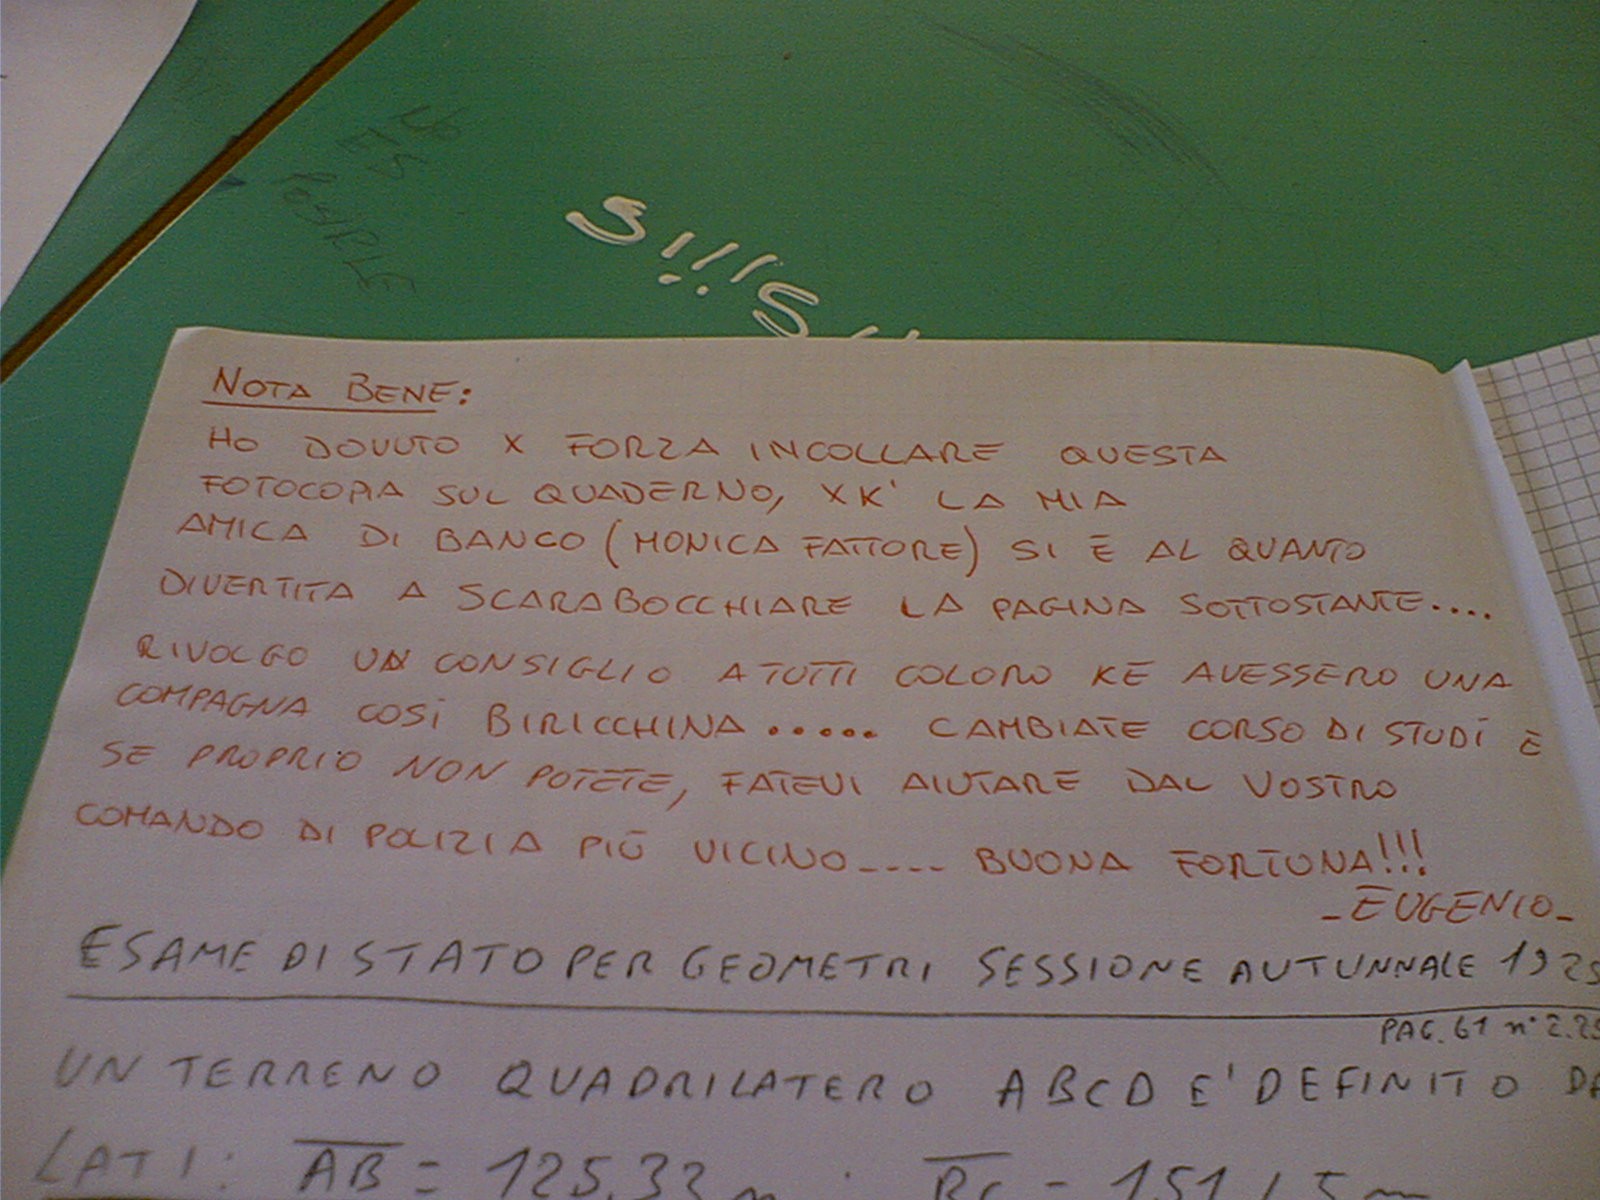 No
ES
POSIBLE
NOTA BENE:
HO DOVUTO X FORZA INCOLLARE QUESTA
FOTOCOPIA SUL QUADERNO, XK' LA MIA
AMICA DI BANCO (MONICA FATTORE) SI È AL QUANTO
DIVERTITA A SCARABOCCHIARE LA PAGINA SOTTOSTANTE....
RIVOLGO UN CONSIGLIO A TUTTI COLORO KE AVESSERO UNA
COMPAGNA COSÌ BIRICCHINA..... CAMBIATE CORSO DI STUDI E
SE PROPRIO NON POTETE, FATEVI AIUTARE DAL VOSTRO
COMANDO DI POLIZIA PIÙ VICINO.... BUONA FORTUNA!!!
-EUGENIO-
ESAME DI STATO PER GEOMETRI SESSIONE AUTUNNALE
PAG. 61 n°
UN TERRENO QUADRILATERO ABCD E' DEFINITO DA
LATI: AB = 125,33 m